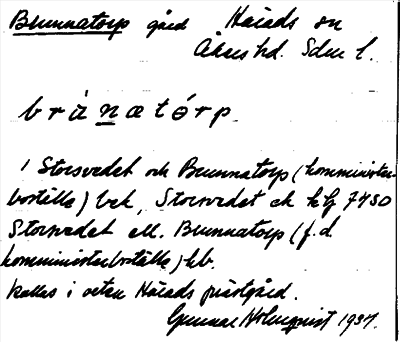 Brunnatorp gård Härads sn
Åkers hd. Sdm l.
brànatórp.
1 Storsvedet och Brunnatorp (komminister-
boställe) bek, Storsvedet ek kfg 7450
Storsvedet ell. Brunnatorp (f.d.
komministerboställe) hb.
Kallas i orten Härads prästgård.
Gunnar Holmquist 1937.